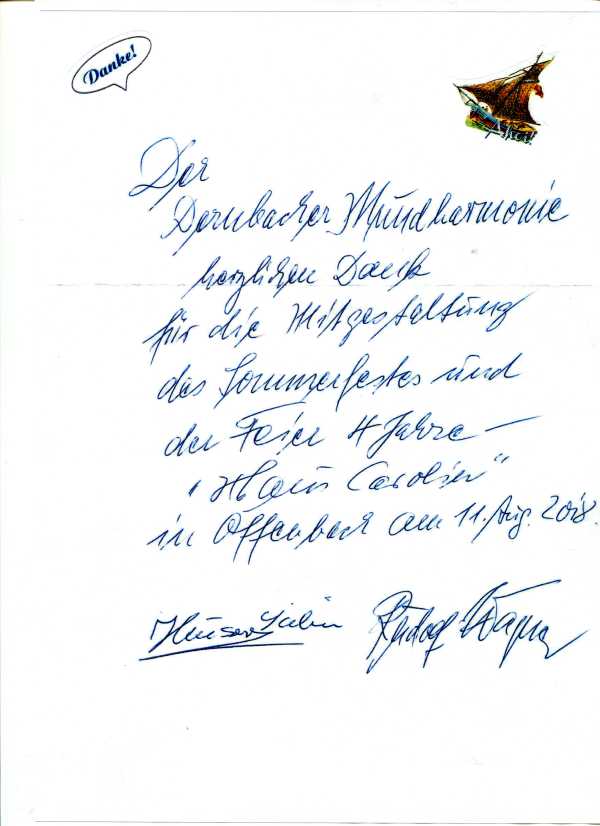 Danke!
Ahoi!
Der
Dernbacher Mundharmonie
herzlichen Dank
für die Mitgestaltung
des Sommerfestes und
der Feier 4 Jahre –
"Haus Carolin"
in Offenbach am 11. Aug. 2018.
Rudolf